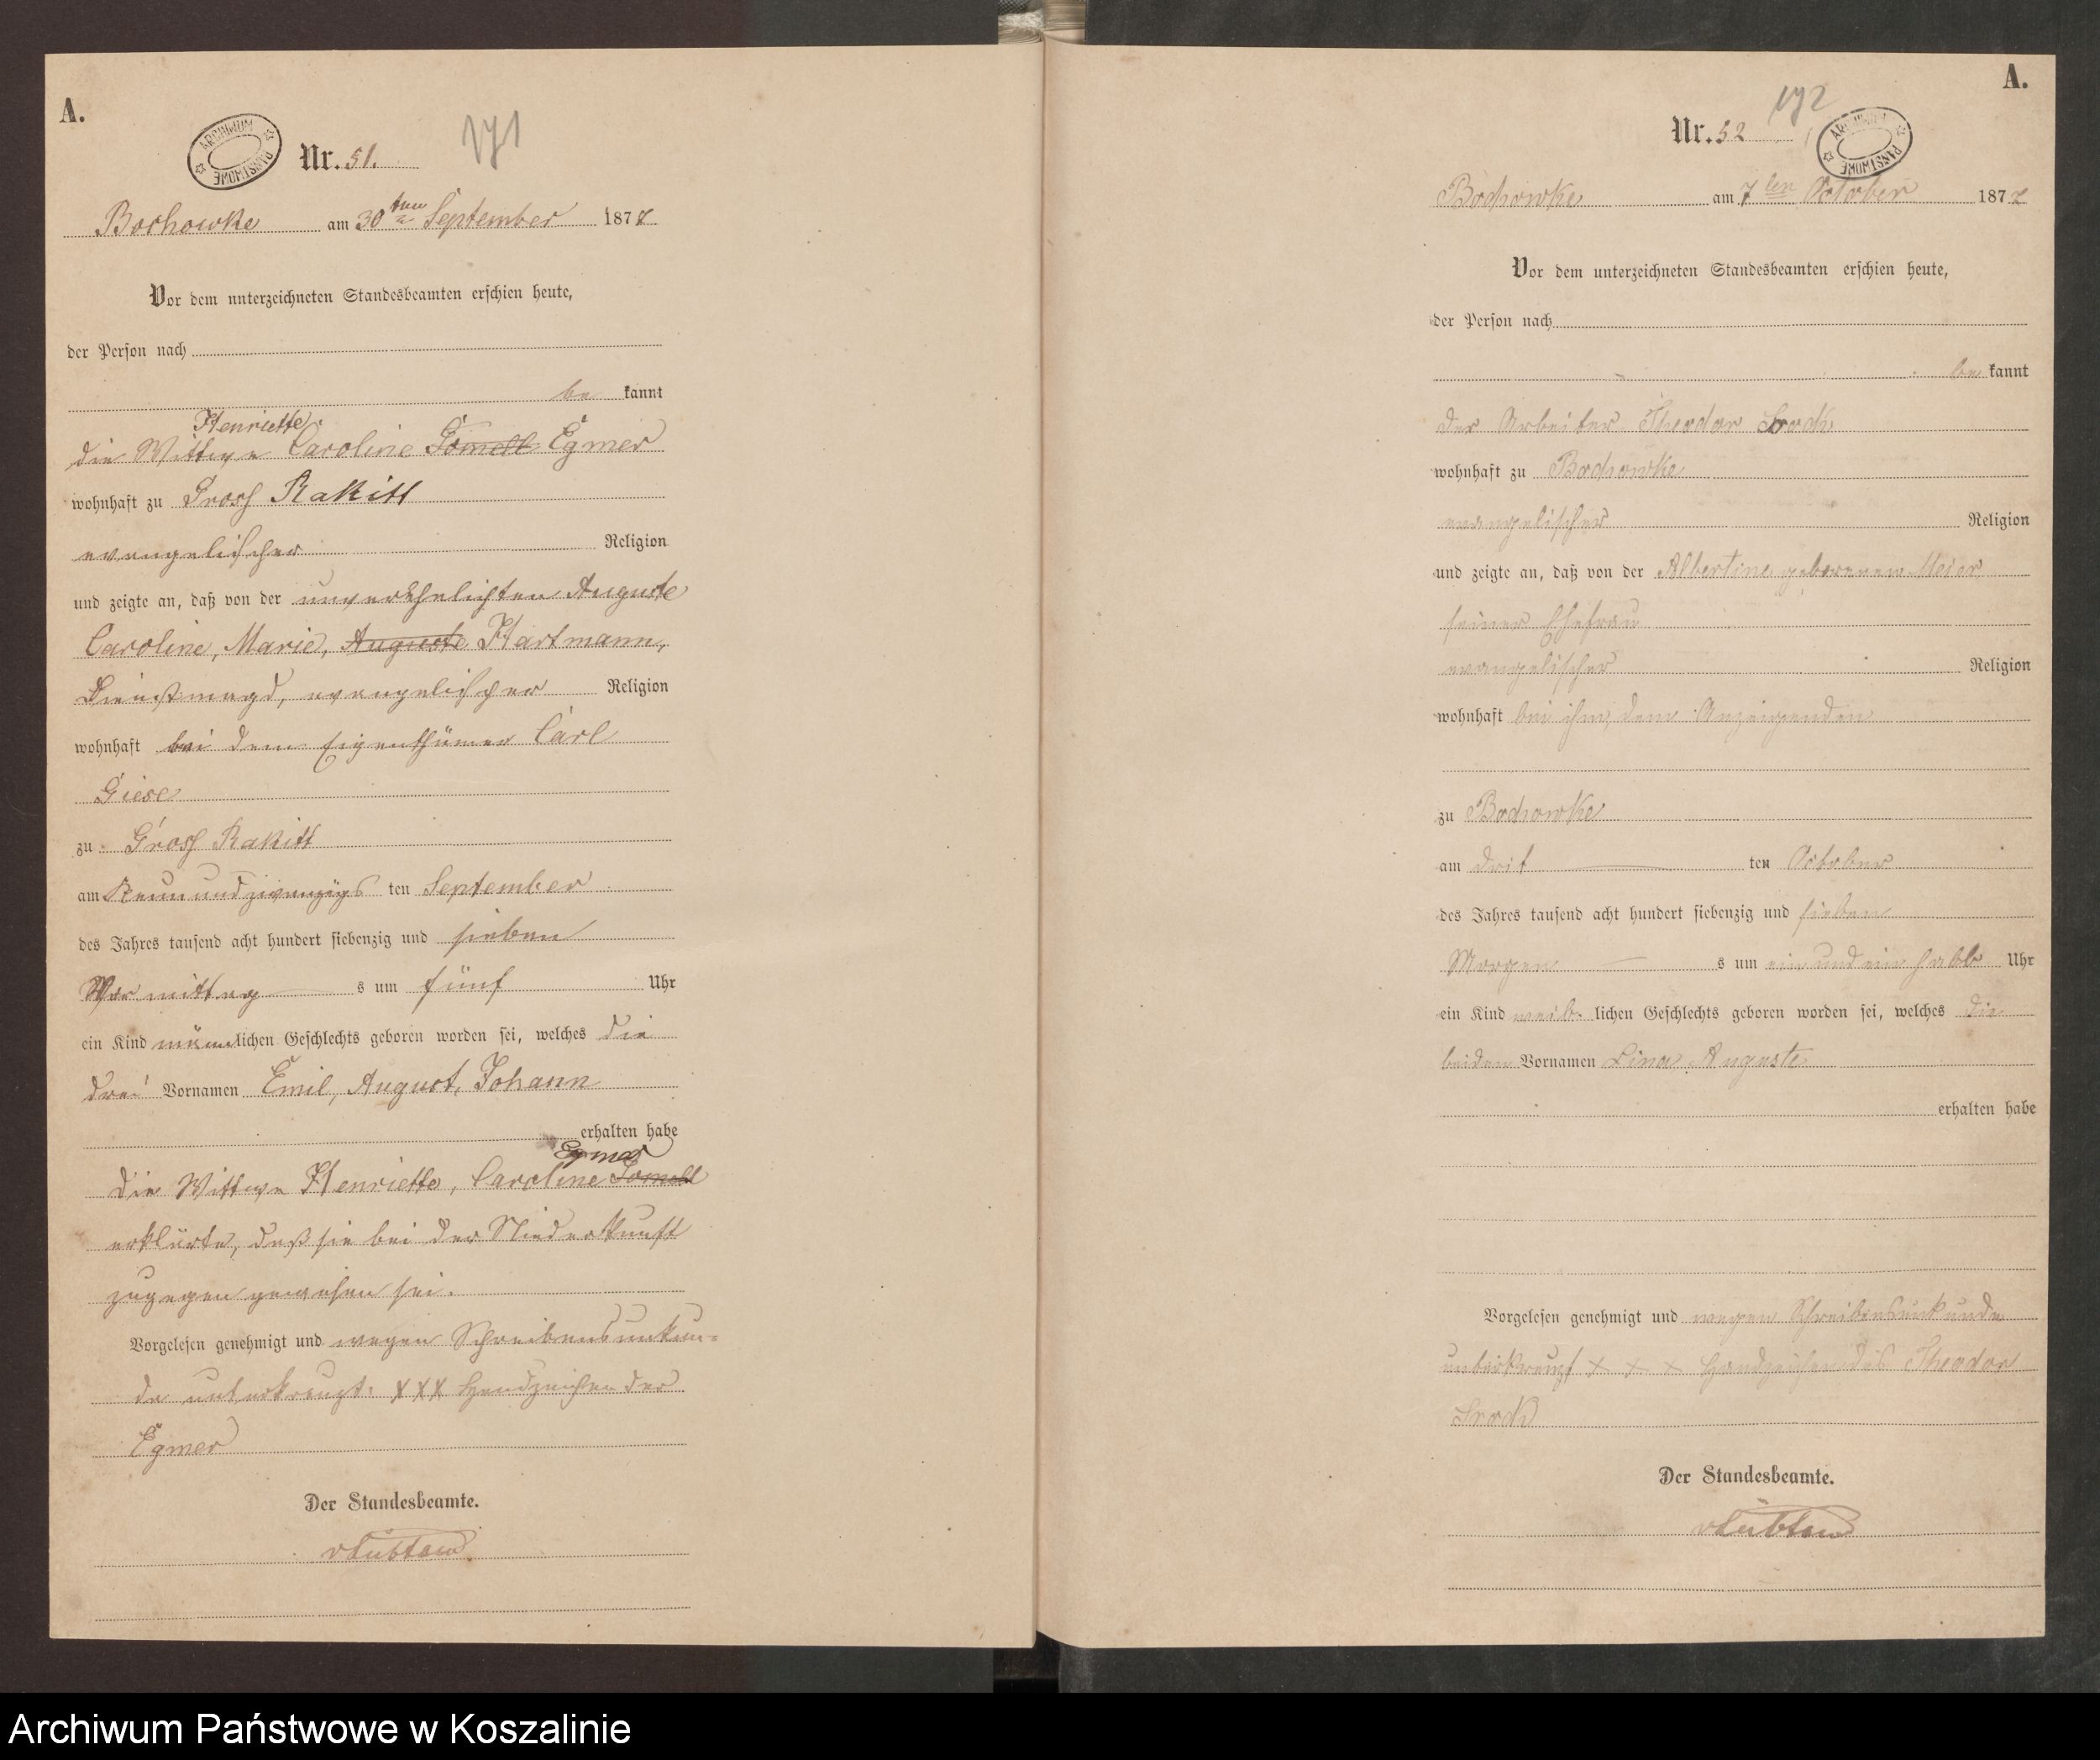 A.
ARCHIWUM PAŃSTWOWE
Nr. 51.
171
Bochowke am 30ten September 1877
Vor dem unterzeichneten Standesbeamten erschien heute,
der Person nach
be kannt
Henriette
die Wittwe Caroline Egmer
wohnhaft zu Gross Rakitt
evangelischer Religion
und zeigte an, daß von der unverehelichten Auguste
Caroline, Marie, Auguste Hartmann,
Dienstmagd, evangelischer Religion
wohnhaft bei dem Eigenthümer Carl
Giese
zu Gross Rakitt
am Neunundzwanzigs ten September
des Jahres tausend acht hundert siebenzig und sieben
Vormittag s um fünf Uhr
ein Kind männlichen Geschlechts geboren worden sei, welches die
drei Vornamen Emil, August, Johann
erhalten habe
Egmer
Die Wittwe Henriette, Caroline
erklärte, daß sie bei der Niederkunft
zugegen gewesen sei.
Vorgelesen genehmigt und wegen Schreibensunkun=
de unterkreuzt. XXX Handzeichen der
Egmer
Der Standesbeamte.
A.
172
Nr. 52
ARCHIWUM PAŃSTWOWE
Bochowke am 7ten October 1877
Vor dem unterzeichneten Standesbeamten erschien heute,
der Person nach
be kannt
der Arbeiter Theodor
wohnhaft zu Bochowke
evangelischer Religion
und zeigte an, daß von der Albertine geborenen Meier
seiner Ehefrau
evangelischer Religion
wohnhaft bei ihm, dem Anzeigenden
zu Bochowke
am drit ten October
des Jahres tausend acht hundert siebenzig und sieben
Morgen s um ein und ein halb Uhr
ein Kind weib lichen Geschlechts geboren worden sei, welches die
beiden Vornamen Lina Auguste
erhalten habe
Vorgelesen genehmigt und wegen Schreibensunkunde
unterkreuzt X X X Handzeichen des Theodor
Der Standesbeamte.
Archiwum Państwowe w Koszalinie